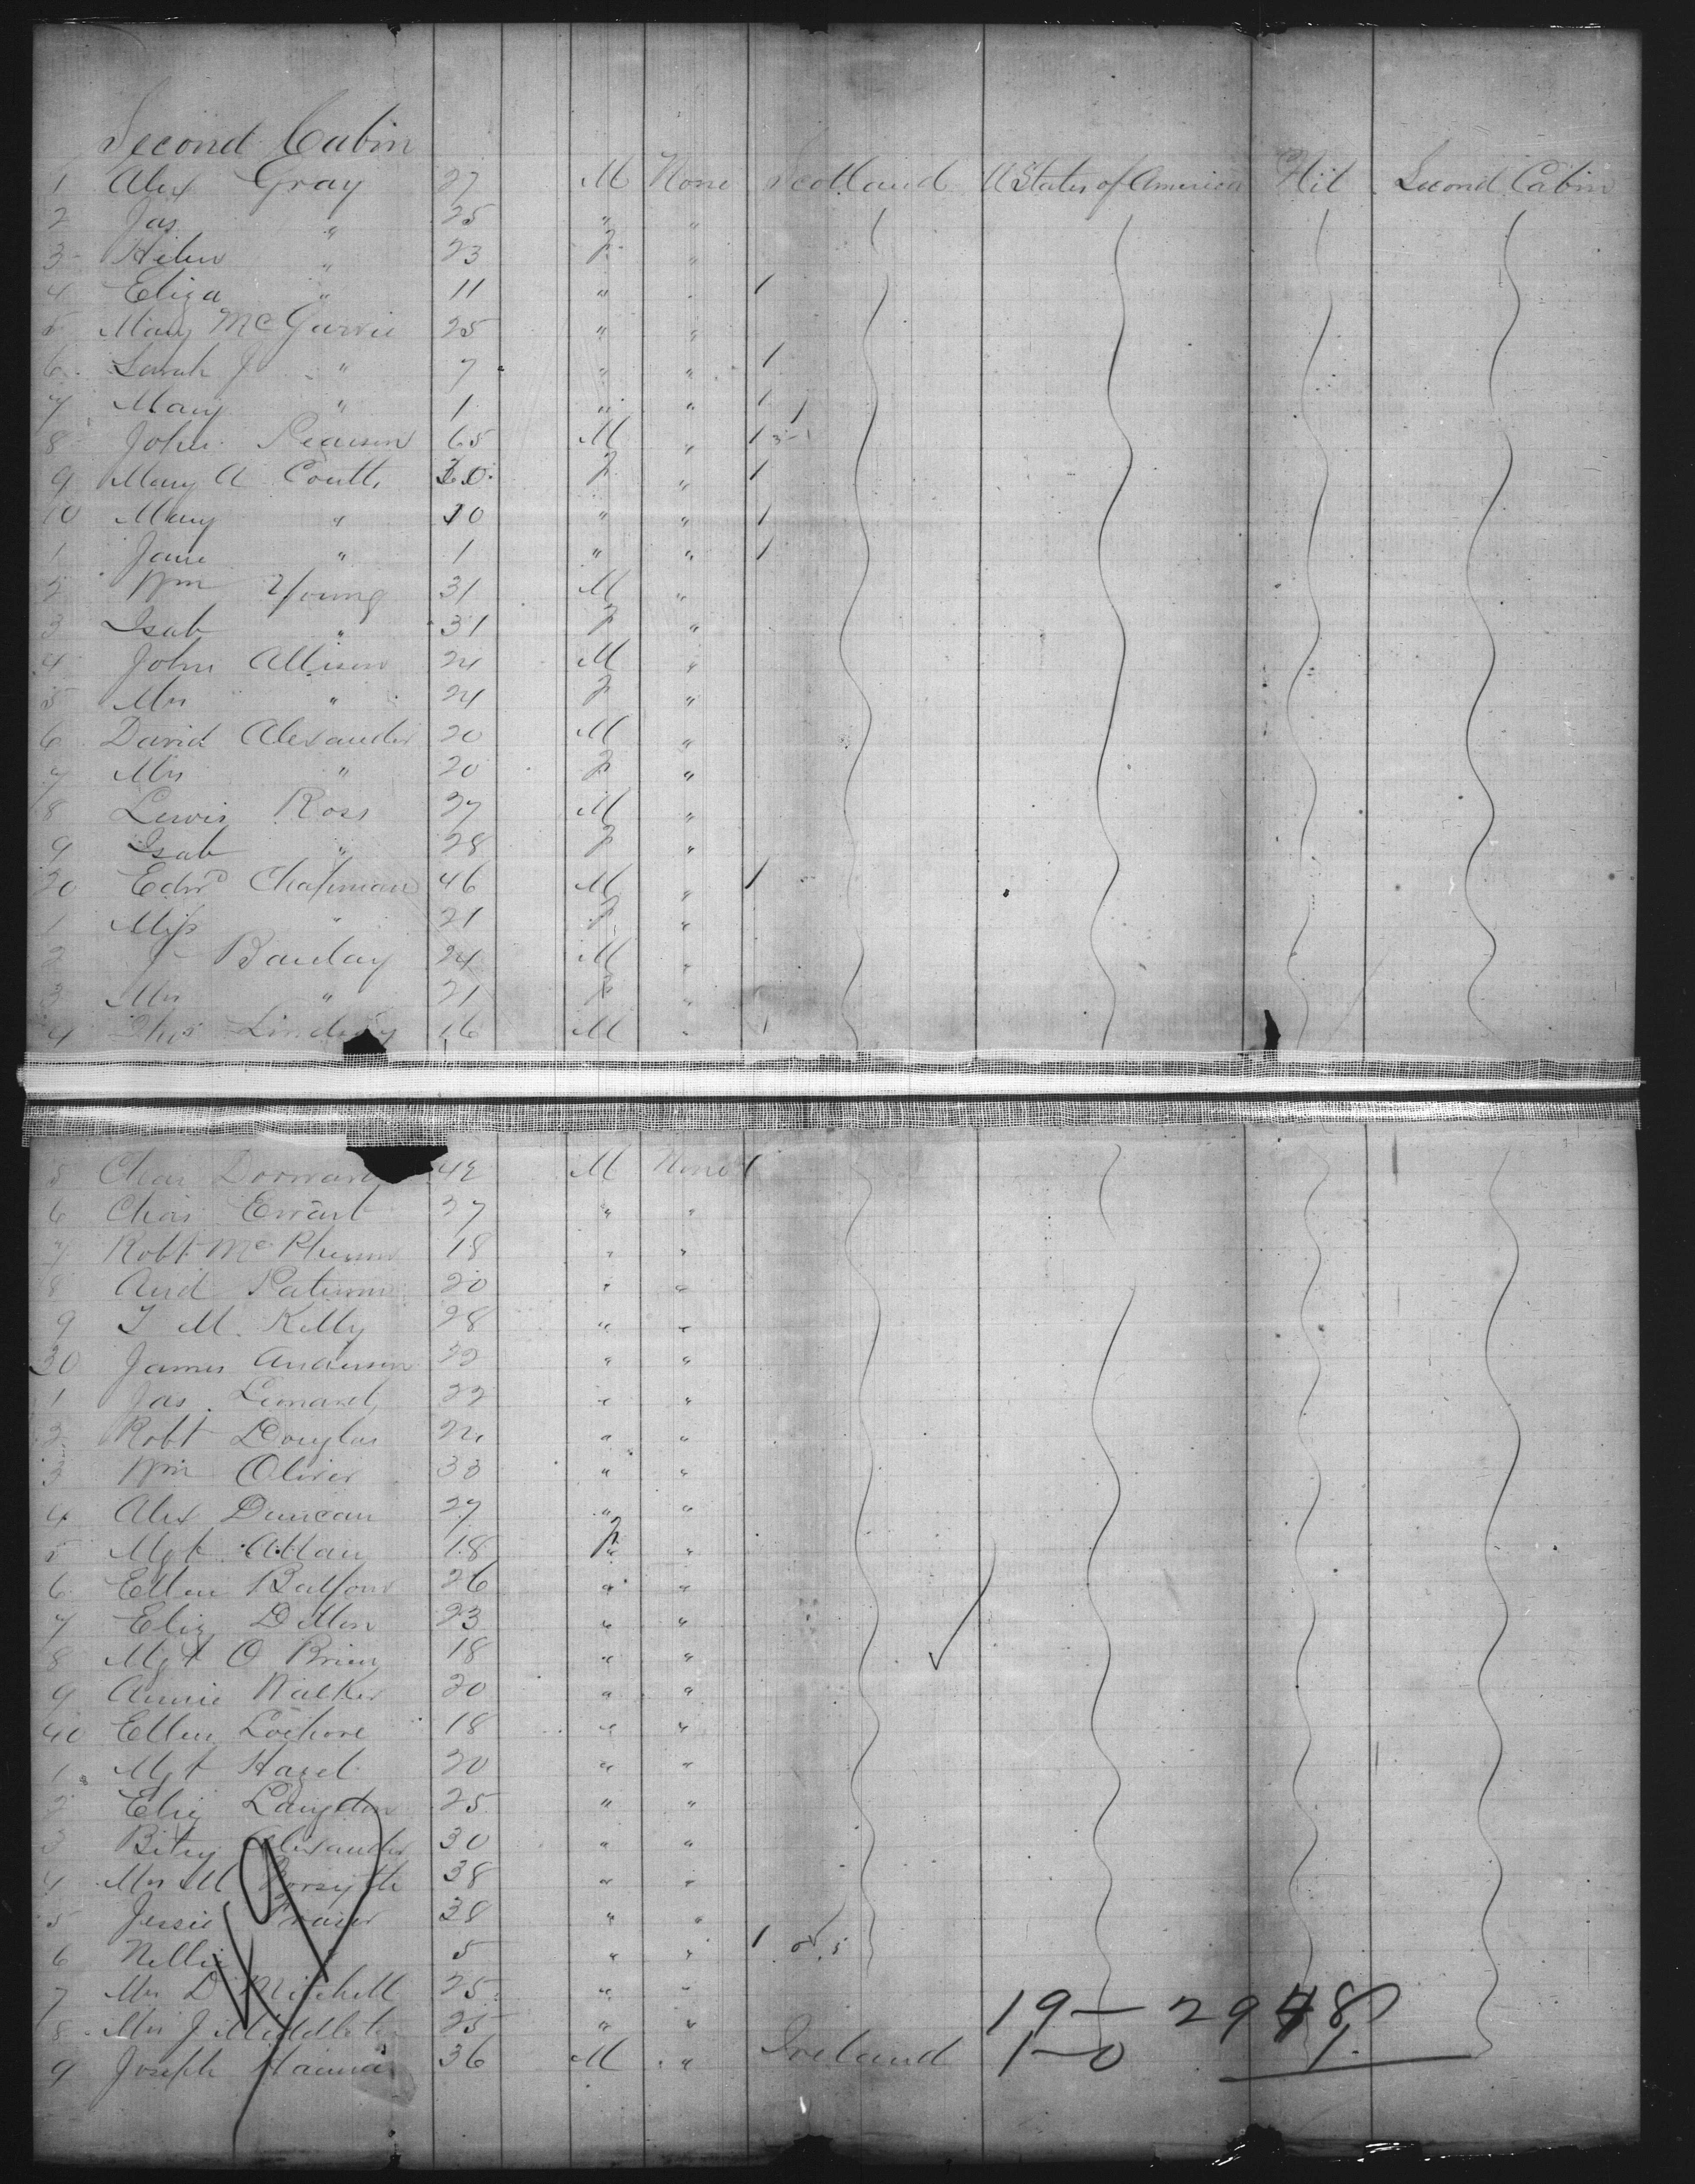 Second Cabin
1 Alex Gray 27 M None Scotland U States of America Nil Second Cabin
2 Jas " 25 " "
3 Helen " 23 F "
4 Eliza " 11 " " 1
5 Mary McGarvie 25 " "
6 Sarah J " 7 " " 1
7 Mary " 1 " " 1
8 John Pearson 65 M " 1
9 Mary A Coutts 30 F " 1
10 Mary " 10 " " 1
1 Jane " 1 " " 1
2 Wm Young 31 M "
3 Isab " 31 F "
4 John Allison 24 M "
5 Mrs " 24 F "
6 David Alexander 20 M "
7 Mrs " 20 F "
8 Lewis Ross 27 M "
9 Isab " 28 F "
20 Edwd Chapman 46 M " 1
1 Miss " 21 F "
2 J Barclay 24 M "
3 Mrs " 21 F "
4 Thos Lindsay 16 M " 1
5 Chas Dorward 42 M None 1
6 Chas Ewart 27 " "
7 Robt McPherson 18 " "
8 And Paterson 20 " "
9 T M. Kelly 28 " "
30 James Anderson 22 " "
1 Jas. Lenard 22 " "
2 Robt Douglas 22 " "
3 Wm Oliver 33 " "
4 Alex Duncan 27 " "
5 Mgt Allan 18 F "
6 Ellen Balfour 26 " "
7 Eliz Dillon 23 " "
8 Mgt O Brien 18 " "
9 Annie Walker 20 " "
40 Ellen Lochore 18 " "
1 Mgt Hazel 20 " "
2 Eliz Langdon 25 " "
3 Betsy Alexander 30 " "
4 Mrs M Forsyth 38 " "
5 Jessie Fraser 38 " "
6 Nellie " 5 " " 1
7 Mrs D Mitchell 25 " "
8 Mrs J Middleton 25 " " 19 – 29 48
9 Joseph Hanna 36 M " Ireland 1–0 1
49